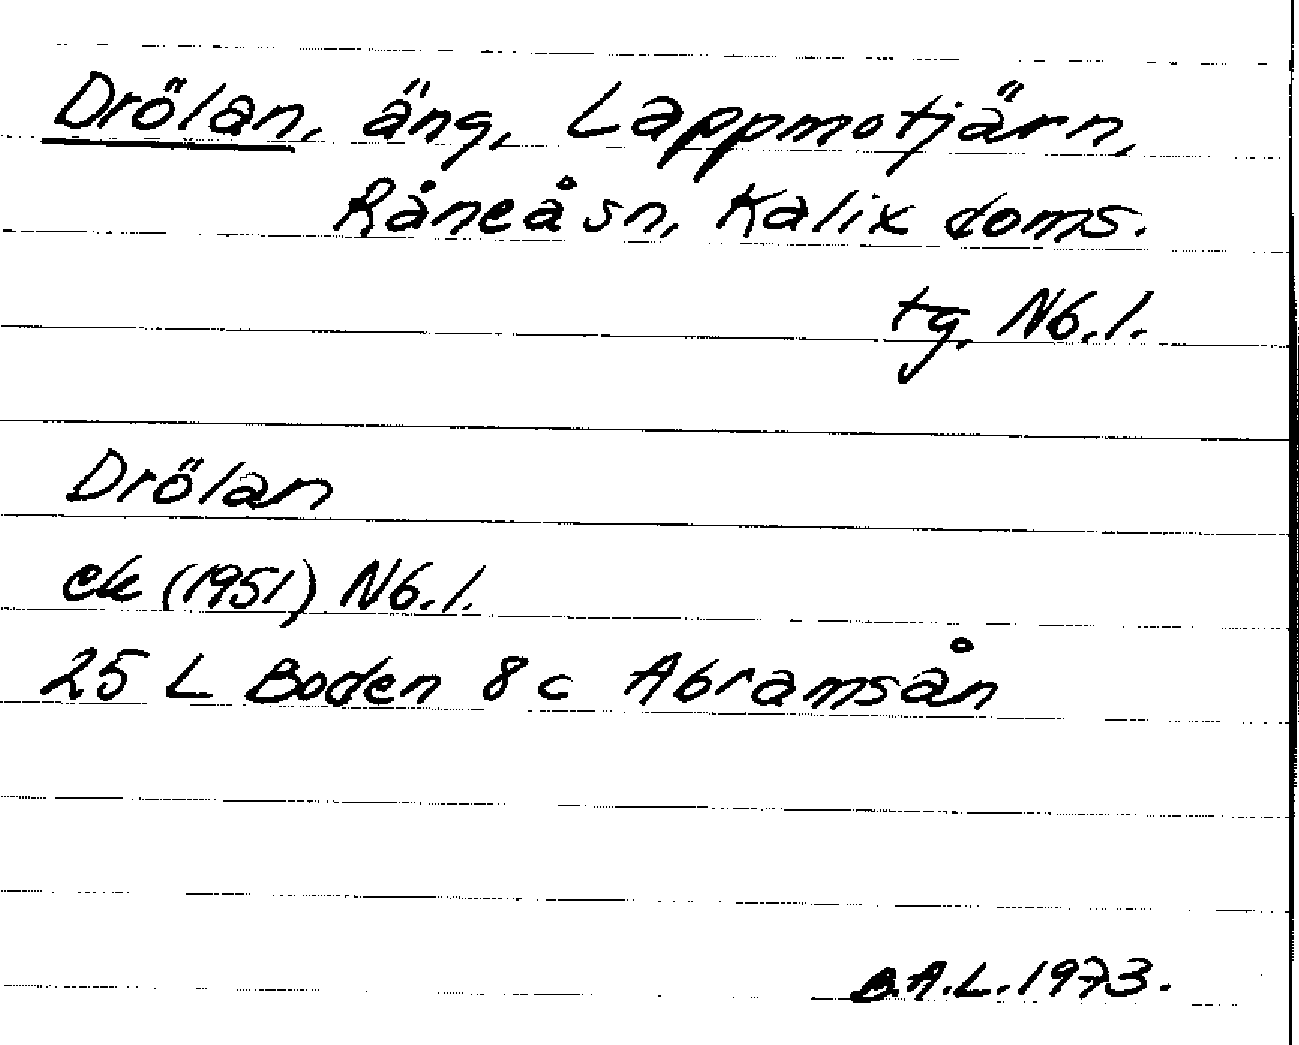 Drölan, äng, Lappmotjärn,
Råneå sn, Kalix doms.
tg, Nb.l.
Drölan
ek (1951) Nb.l.
25 L Boden 8 c Abramsån
B.A.L. 1973.